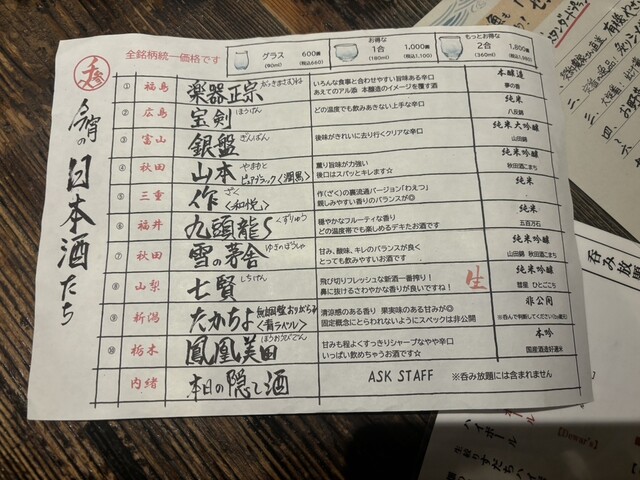 全銘柄統一価格です
グラス 600円
(90ml) (税込660)
お得な
1合 1,000円
(180ml) (税込1,100)
もっとお得な
2合 1,800円
(360ml)
今宵の日本酒たち
① 福島 楽器正宗
いろんな食事と合わせやすい旨味ある辛口
あえてのアル添 本醸造のイメージを覆す酒
本醸造
夢の香
② 広島 宝剣 ほうけん
どの温度でも飲みあきない上手な辛口
純米
八反錦
③ 富山 銀盤 ぎんばん
後味がきれいに去り行くクリアな辛口
純米大吟醸
山田錦
④ 秋田 山本 やまもと
ピュアブラック〈潤黒〉
薫り旨味が力強い
後口はスパッとキレます☆
純米吟醸
秋田酒こまち
⑤ 三重 作 ざく
〈和悦〉
作(ざく)の裏流通バージョン「わえつ」
親しみやすい香りのバランスが◎
純米
⑥ 福井 九頭龍 くずりゅう
穏やかなフルーティな香り
どの温度帯でも楽しめるデキたお酒です
純米
五百万石
⑦ 秋田 雪の茅舎 ゆきのぼうしゃ
甘み、酸味、キレのバランスが良く
とっても飲みやすいお酒です
純米吟醸
山田錦 秋田酒こまち
⑧ 山梨 七賢 しちけん
飛び切りフレッシュな新酒一番搾り！
鼻に抜けるさわやかな香りが良いですね！
生
純米吟醸
彗星 ひとごこち
⑨ 新潟 たかちよ 無調整おりがらみ
〈青ラベル〉
清涼感のある香り 果実味のある甘みが◎
固定概念にとらわれないようにスペックは非公開
非公開
⑩ 栃木 鳳凰美田 ほうおうびでん
甘みも程よくすっきりシャープなやや辛口
いっぱい飲めちゃうお酒です☆
本吟
国産酒造好適米
内緒 本日の隠し酒
ASK STAFF ※呑み放題には含まれません
呑み放題
ハイボール